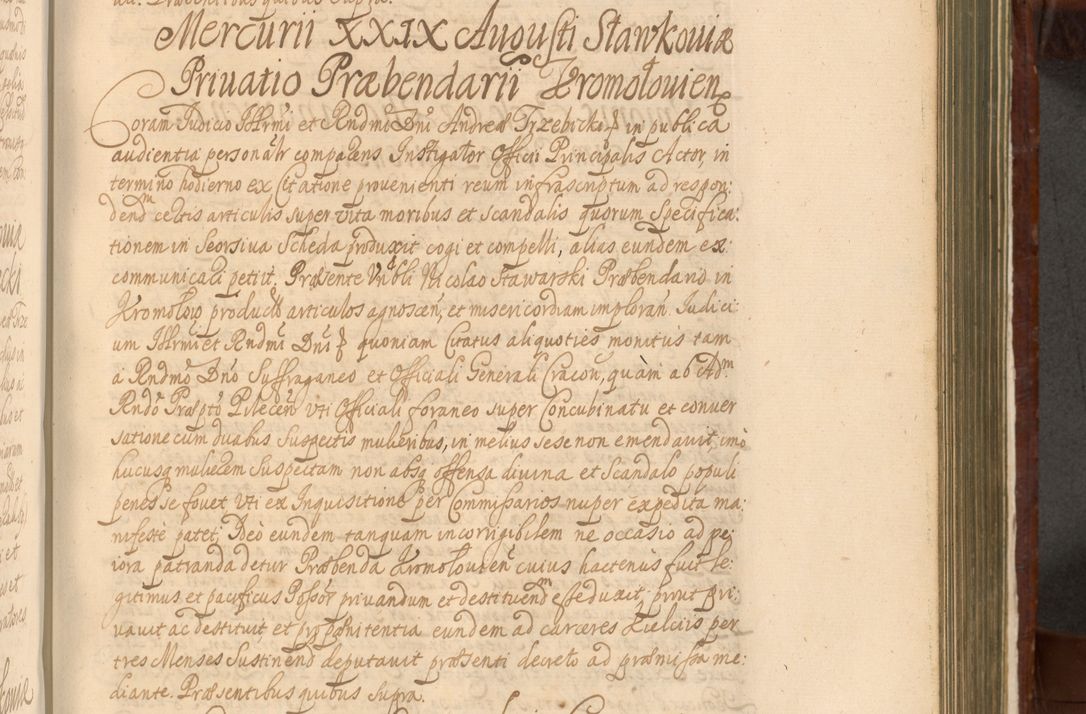 Mercurii XXIX Augusti Slawkoviæ
Privatio Præbendarii Kromołovien
Coram Judicio Illrmi et Rndmi Dni Andreæ Trzebicki in publica
audientia personalr comparens Instigator Officii Principalis Actor, in
termino hodierno ex Citatione provenienti reum infrascriptum ad respon:
dendm certis articulis super vita moribus et scandalis quorum specifica:
tionem in Seorsiva Scheda produxit cogi et compelli, alias eundem ex:
communicari petiit. Præsente Vnbli Nicolao Stawarski Præbendario in
Kromołow producto articulos agnoscen, et misericordiam imploran. Judici:
um Illrmi et Rndmi Dni quoniam Citatus aliquoties monitus tam
a Rndmo Dno Suffraganeo et Officiali Generali Cracou, quàm ab Adm
Rndo Præpto Pilecen vti Officiali foraneo super Concubinatu et conver
satione cum duabus suspectis mulieribus, in melius sese non emendavit, imò
hucusq mulierem suspectam non absq offensa divina et scandalo populi
penes se fovet vti ex Inquisitione per Commissarios nuper expedita ma:
nifestè patet, Ideò eundem tanquam incorrigibilem ne occasio ad pe:
iora patranda detur Præbenda Kromołovien cuius hactenus fuit le:
gitimus et pacificus Possor privandum et destituendm esse duxit, prout pri:
vavit ac destituit et pro pænitentia eundem ad carceres Kielciis per
tres Menses sustinend deputavit præsenti decreto ad præmissa me:
diante. Præsentibus quibus supra.